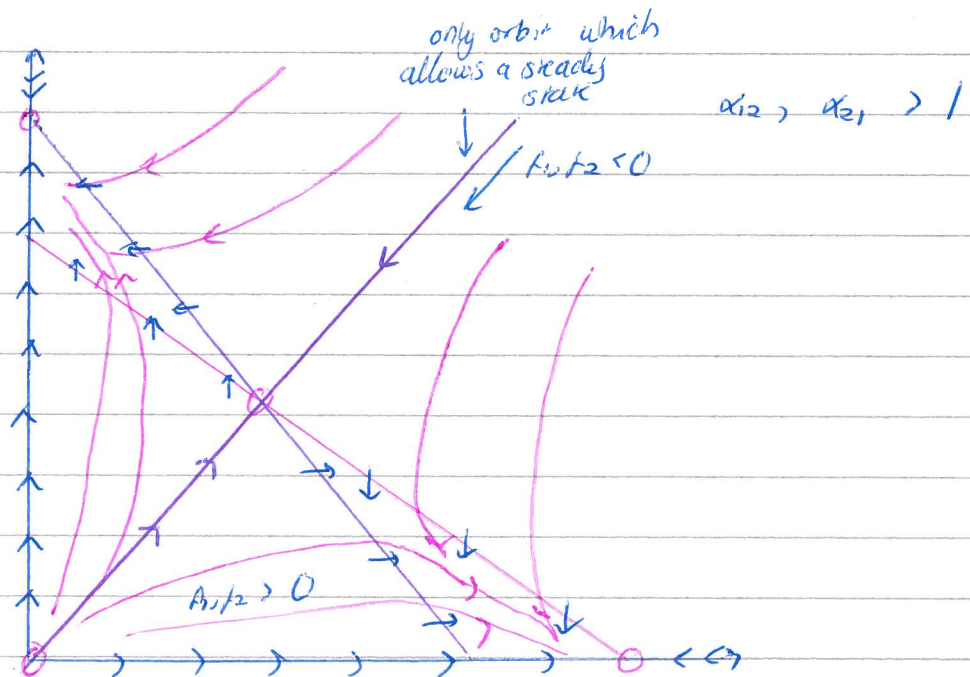 only orbit which
allows a steady
state
α₁₂, α₂₁ > 1
f₁, f₂ < 0
f₁, f₂ > 0